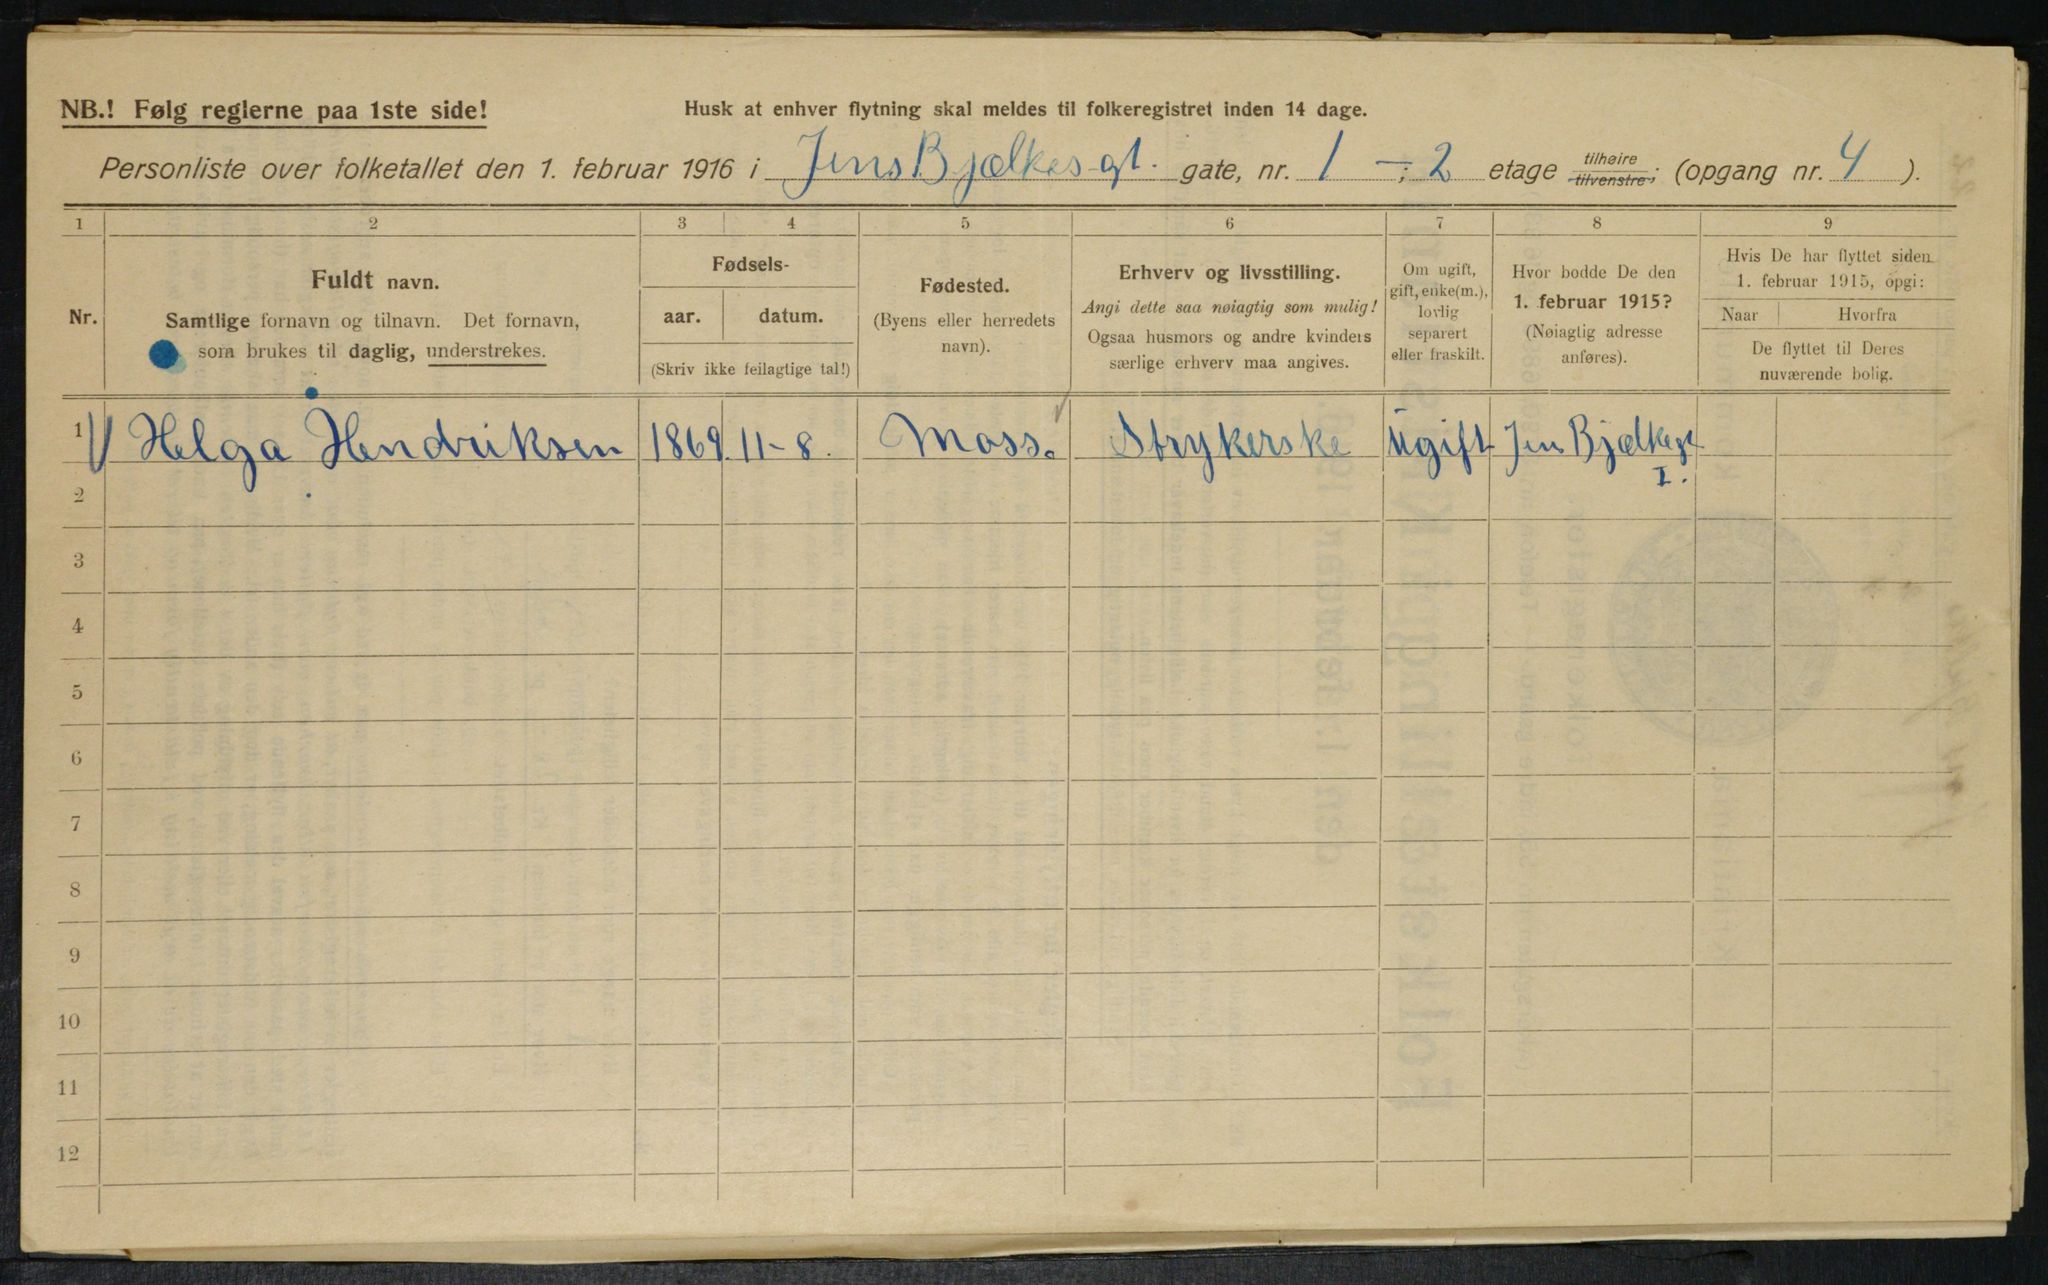 NB.! Følg reglerne paa 1ste side!
Husk at enhver flytning skal meldes til folkeregistret inden 14 dage.
Personliste over folketallet den 1. februar 1916 i Jens Bjælkes gt. gate, nr. 1 - ; 2 etage tilhøire tilvenstre; (opgang nr. 4 ).
1 2 3 4 5 6 7 8 9
Nr.
Fuldt navn.
Samtlige fornavn og tilnavn. Det fornavn,
som brukes til daglig, understrekes.
Fødsels-
aar. datum.
(Skriv ikke feilagtige tal!)
Fødested.
(Byens eller herredets
navn).
Erhverv og livsstilling.
Angi dette saa nøiagtig som mulig!
Ogsaa husmors og andre kvinders
særlige erhverv maa angives.
Om ugift,
gift, enke(m.),
lovlig
separert
eller fraskilt.
Hvor bodde De den
1. februar 1915?
(Nøiagtig adresse
anføres).
Hvis De har flyttet siden
1. februar 1915, opgi:
Naar Hvorfra
De flyttet til Deres
nuværende bolig.
1 Helga Hendriksen 1869. 11-8. Moss. Strykerske Ugift Jens Bjælkegt
I.
2
3
4
5
6
7
8
9
10
11
12